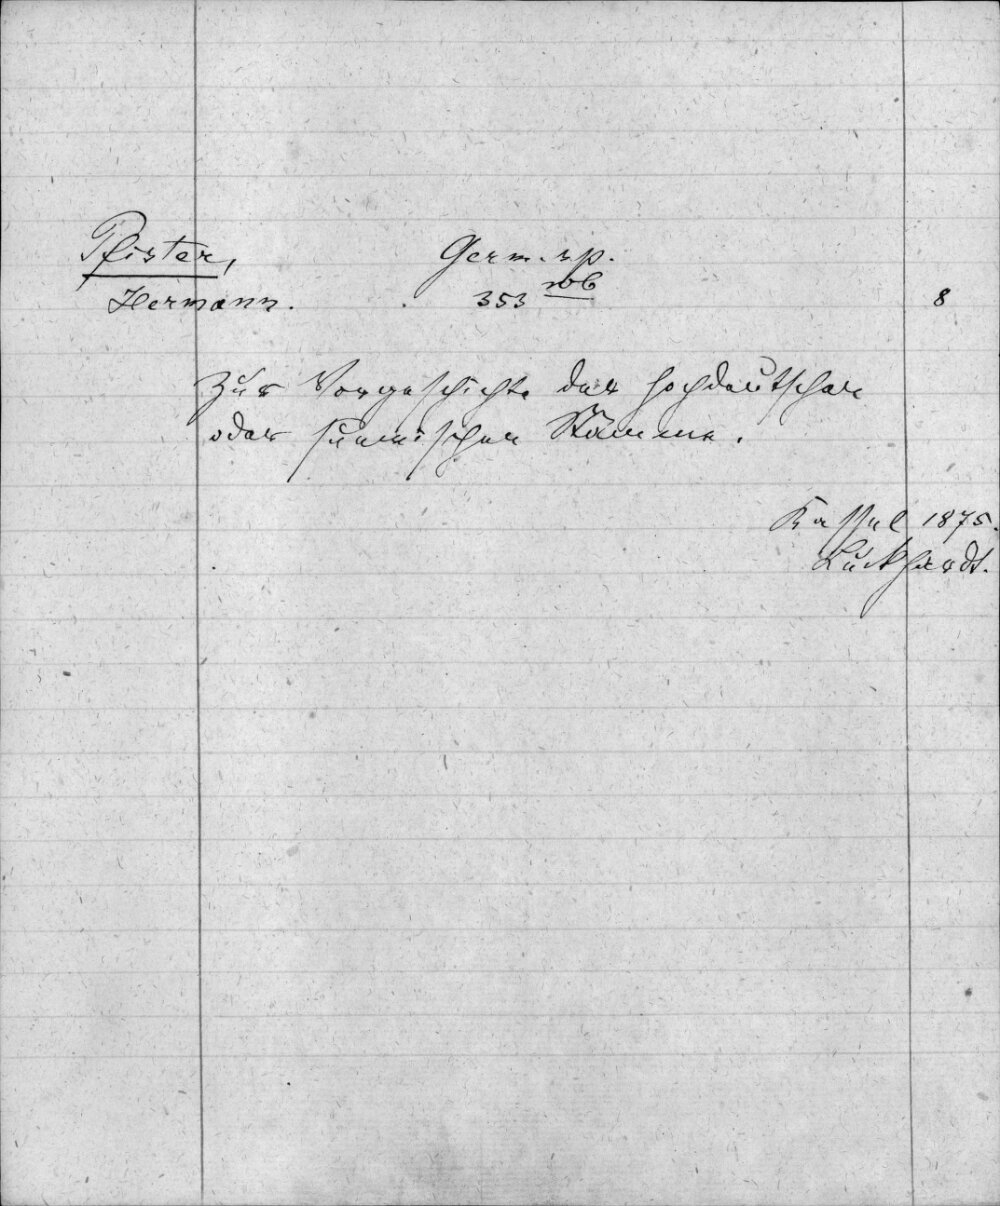 Pfister,
Germ. sp.
Hermann.
353
8
Zur Vorgeschichte der hochdeutschen
oder suevischen Stämme.
Kassel 1875.
Luckhardt.